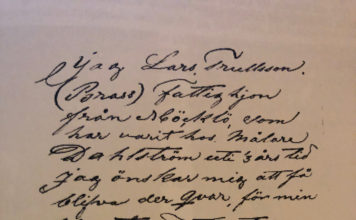 Jag Lars Truellsson.
(Brass) Fattighjon
från Möcklö, som
har varit hos Målare
Dahlström uti 3 års tid
Jag önskar mig att få
blifva der qvar, för min